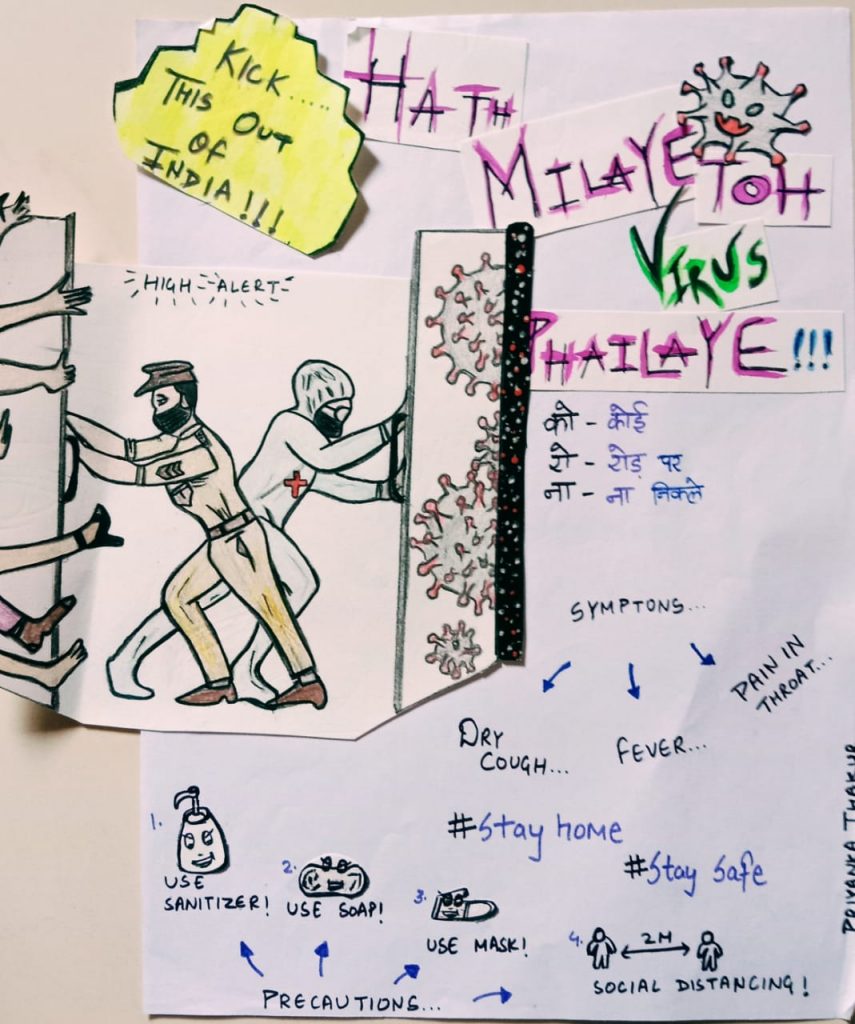 KICK.....
THIS OUT
OF
INDIA!!!
HATH
MILAYE
TOH
VIRUS
PHAILAYE!!!
HIGH ALERT
को - कोई
रो - रोड़ पर
ना - ना निकले
SYMPTONS...
DRY
COUGH...
FEVER...
PAIN IN
THROAT...
#Stay home
#Stay Safe
1.
USE
SANITIZER!
2.
USE SOAP!
3.
USE MASK!
4.
2M
SOCIAL DISTANCING!
PRECAUTIONS...
PRIYANKA THAKUR